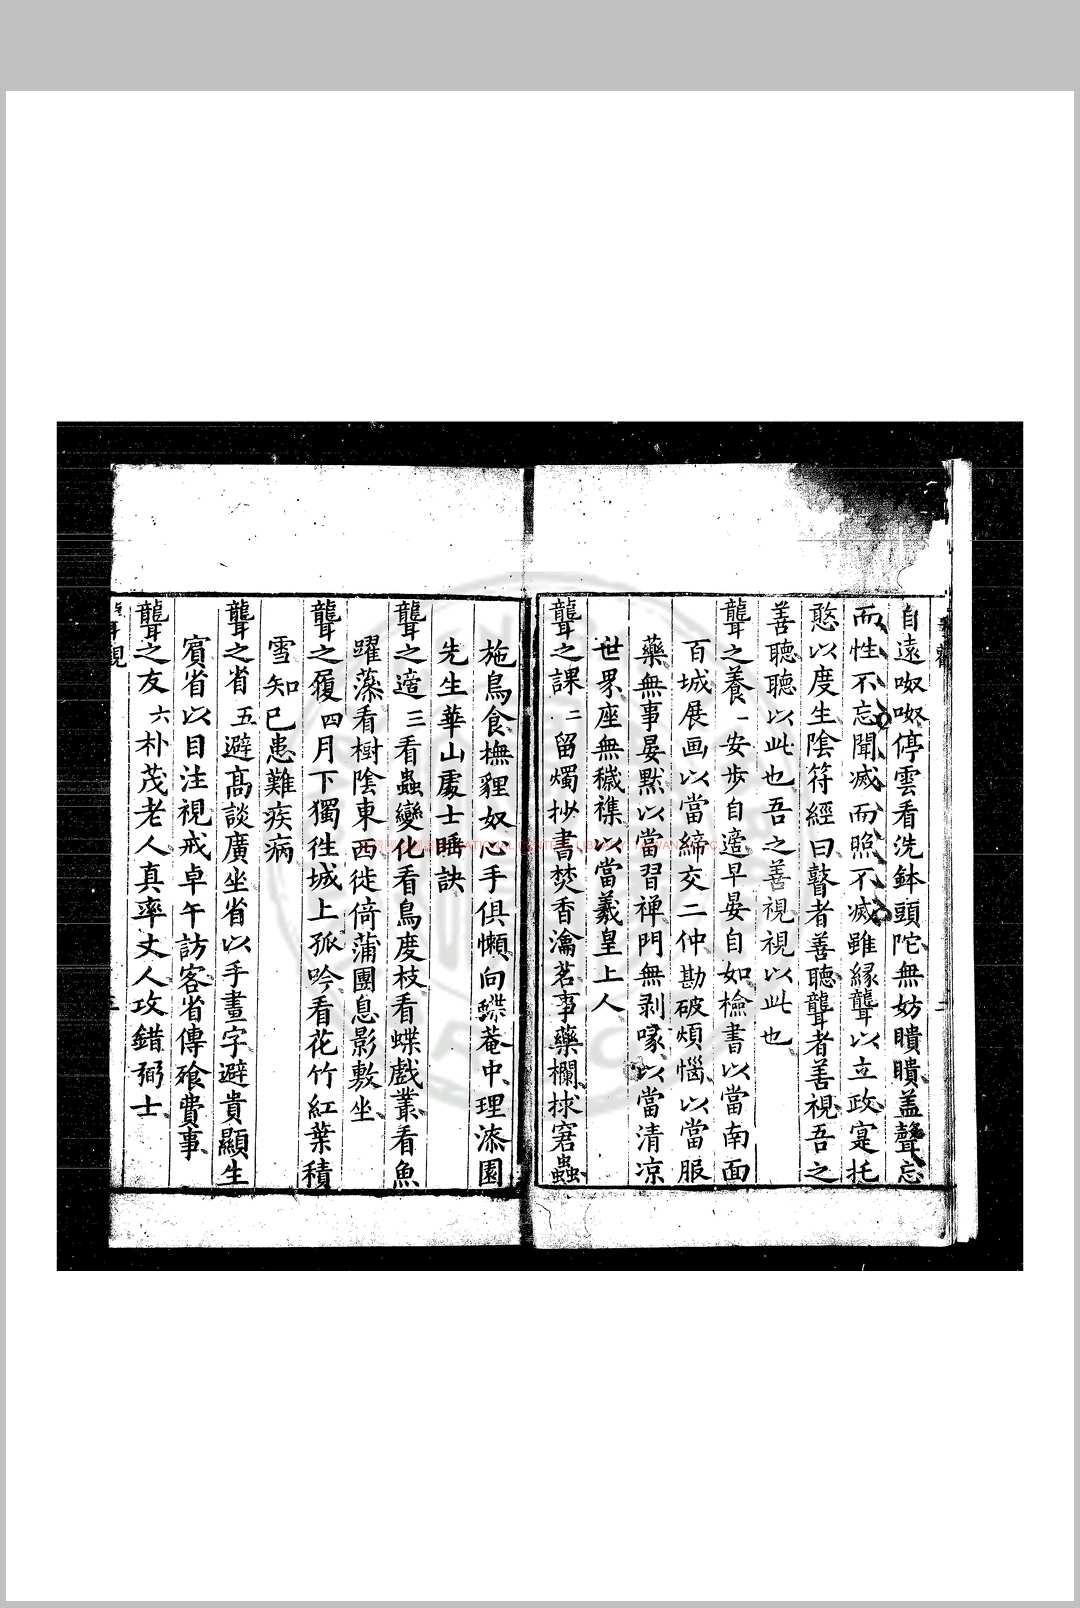 自遠呶呶停雲看洗鉢頭陀無妨瞶瞶盖聾忘
而性不忘聞滅而照不滅雖緣聾以立政寔托
憨以度生陰符經曰瞽者善聽聾者善視吾之
善聽聽以此也吾之善視視以此也
聾之養一安步自適早晏自如檢書以當南面
百城展画以當締交二仲勘破煩惱以當服
藥無事晏默以當習禅門無剥喙以當清凉
世界座無襶襍以當羲皇上人
聾之課二留燭抄書焚香瀹茗事藥欄捄窘蟲
施鳥食撫貍奴心手俱懶向蠂菴中理漆園
先生華山處士睡訣
聾之適三看蟲變化看鳥度枝看蝶戲叢看魚
躍藻看樹陰東西徙倚蒲團息影敷坐
聾之履四月下獨徃城上孤吟看花竹紅葉積
雪知已患難疾病
聾之省五避高談廣坐省以手畫字避貴顯生
賓省以目注視戒卓午訪客省傳飱費事
聾之友六朴茂老人真率丈人攻錯弼士